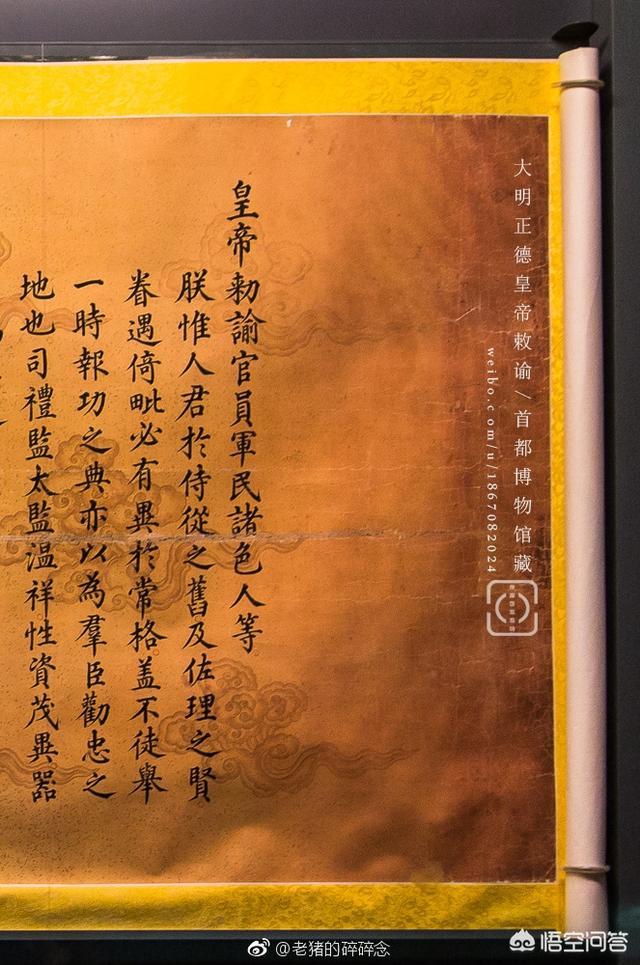 皇帝勅諭官員軍民諸色人等
朕惟人君於侍從之舊及佐理之賢
眷遇倚毗必有異於常格盖不徒舉
一時報功之典亦以為羣臣勸忠之
地也司禮監太監温祥性資茂異器
大明正德皇帝敕谕/首都博物馆藏
weibo.com/u/1867082024
@老猪的碎碎念
悟空问答